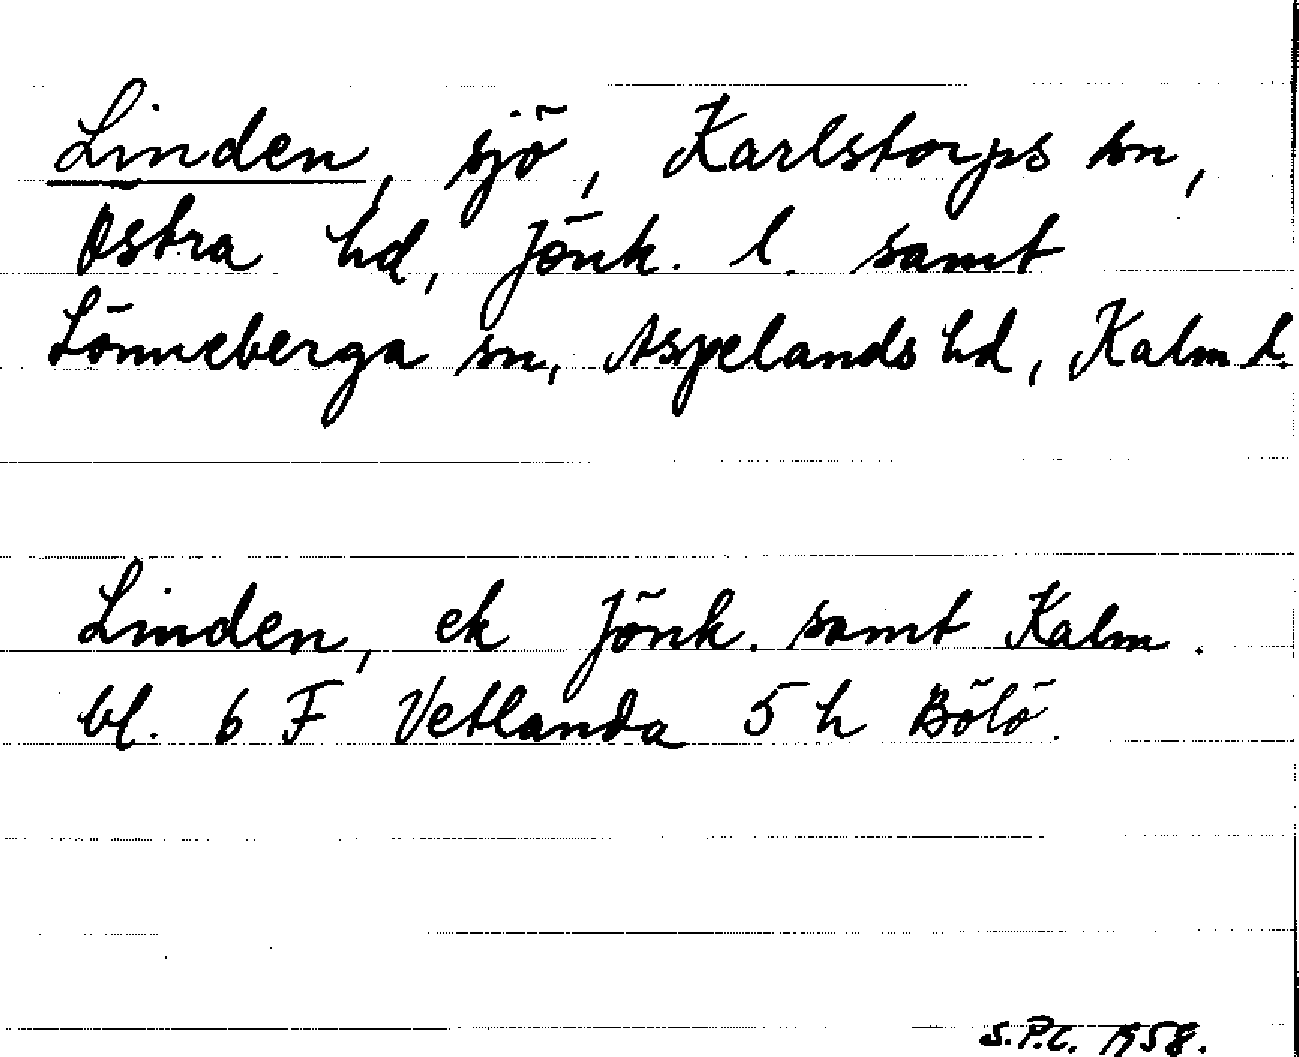 Linden, sjö, Karlstorps sn,
Östra hd, Jönk. l. samt
Lönneberga sn, Aspelands hd, Kalm l.
Linden, ek Jönk. samt Kalm.
bl. 6 F Vetlanda 5 h Bölö.
S.P.C. 1958.